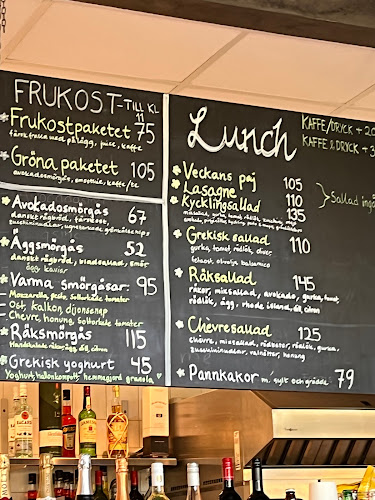 FRUKOST-TILL KL 11
Frukostpaketet 75
färsk fralla med pålägg, juice, kaffe
Gröna paketet 105
avokadosmörgås, smoothie, kaffe/te
Avokadosmörgås 67
danskt rågbröd, färskost,
Äggsmörgås 52
danskt rågbröd, bladsallad, smör
ägg kaviar
Varma smörgåsar- 95
- Mozzarella, pesto, Soltorkade tomater
- Ost, Kalkon, dijonsenap
- Chevre, honung, Soltorkade tomater
Räksmörgås 115
Handskalade räkor, ägg, dill, citron
Grekisk yoghurt 45
Yoghurt, hallonkompott, hemmagjord granola
Lunch
KAFFE/DRYCK + 20
KAFFE & DRYCK + 3
Veckans paj 105
Lasagne 110
Kycklingsallad 135
Sallad ingå
Grekisk sallad 110
gurka, tomat, rödlök, oliver,
fetaost, olivolja balsamico
Räksallad 145
räkor, mixsallad, avokado, gurka, tomat,
rödlök, ägg, rhode island, dill, citron
Chèvresallad 125
chèvre, mixsallad, rödbetor, rödlök, gurka,
valnötter, honung
Pannkakor m. sylt och grädde 79